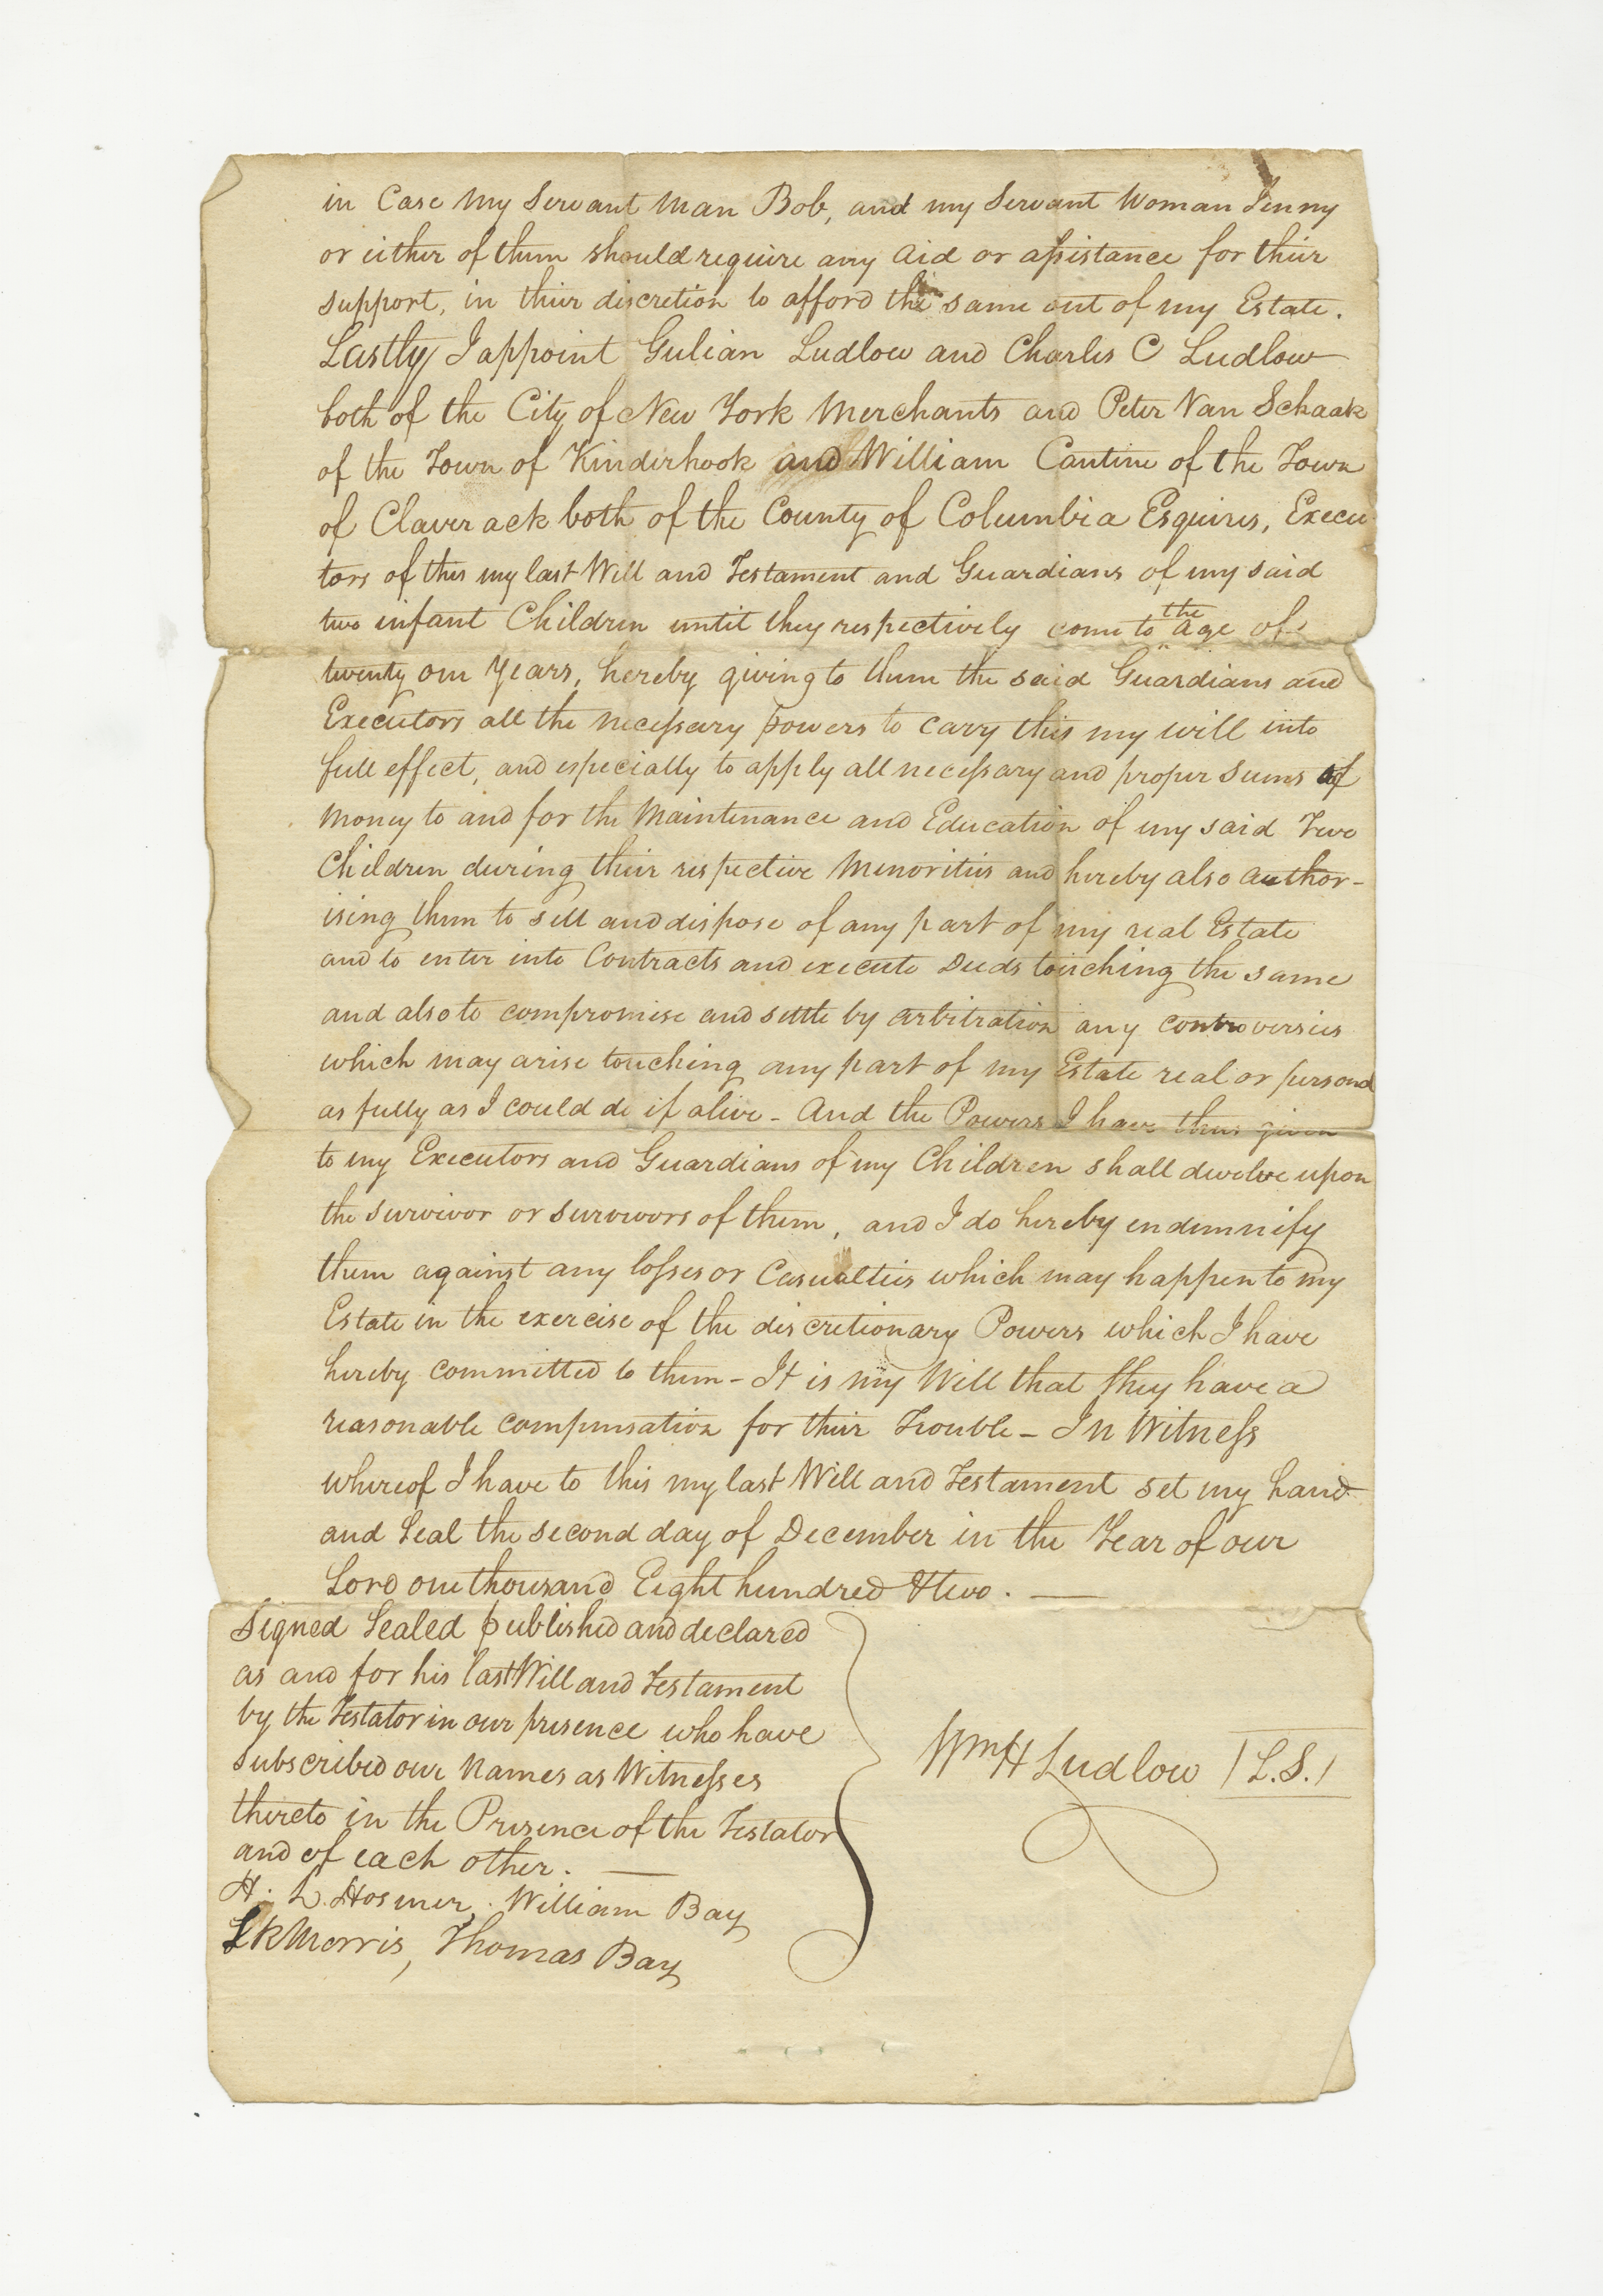 in Case my Servant man Bob, and my Servant Woman Jenny
or either of them should require any aid or assistance for their
support, in their discretion to afford the same out of my Estate.
Lastly I appoint Gulian Ludlow and Charles C Ludlow
both of the City of New York Merchants and Peter Van Schaak
of the Town of Kinderhook and William Cantine of the Town
of Claverack both of the County of Columbia Esquires, Execu
tors of this my last Will and Testament and Guardians of my said
two infant Children until they respectively come to the age of
twenty one Years, hereby giving to them the said Guardians and
Executors all the necessary powers to carry this my will into
full effect, and especially to apply all necessary and proper sums of
money to and for the Maintenance and Education of my said Two
Children during their respective Minorities and hereby also author-
ising them to sell and dispose of any part of my real Estate
and to enter into Contracts and execute Deeds touching the same
and also to compromise and settle by arbitration any controversies
which may arise touching any part of my Estate real or personal
as fully as I could do if alive - And the Powers I have thus given
to my Executors and Guardians of my Children shall devolve upon
the survivor or survivors of them, and I do hereby indemnify
them against any losses or Casualties which may happen to my
Estate in the exercise of the discretionary Powers which I have
hereby committed to them - It is my Will that they have a
reasonable compensation for their Trouble - In Witness
whereof I have to this my last Will and Testament set my hand
and Seal the second day of December in the Year of our
Lord one thousand Eight hundred & two.
Signed Sealed published and declared
as and for his last Will and Testament
by the Testator in our presence who have
subscribed our Names as Witnesses
thereto in the Presence of the Testator
and of each other.
H. L. Hosmer, William Bay
L R Morris, Thomas Bay
Wm H Ludlow (L.S.)